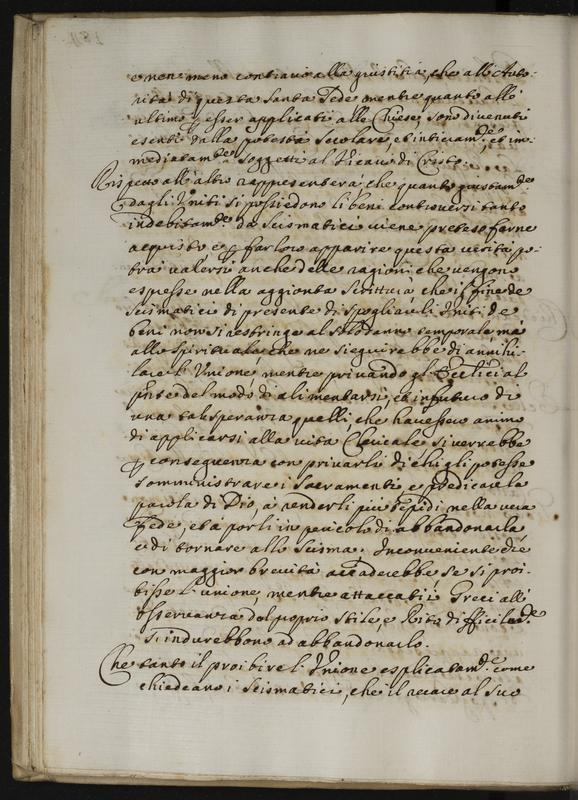 e non meno contrario alla giustitia, che all'Auto-
rità di questa Santa Sede mentre quanto all'
ultimo esser applicati alle Chiese, sono divenuti
esenti dalla potestà secolare, et interam.te et im-
mediatam.te soggetti al Vicario di Cristo.
Rispetto all'altro rappresenterà, che quanto giustam.te
dagli Uniti si possiedono li beni controversi tanto
indebitam.te da Scismatici viene preteso farne
acquisto e p farloro apparire questa verità po-
trà valersi anche delle ragioni che vengono
espresse nella aggionta Scrittura che il fine de
Scismatici di presente di spogliar li Uniti de
beni non si restringe al solo danno temporale mà
allo spirituale che ne sieguirebbe di annihi-
lare l'Unione mentre privando gl'Eccl.ci al
pnte del modo di alimentarsi, et in futuro di
una tal speranza quelli che havessero animo
di applicarsi alla vita Clericale si verrebbe
p conseguenza con privarli di chi gli potesse
somministrare i Sacramenti e predicar la
parola di Dio, à renderli più tepidi nella vera
fede, et à porli in pericolo di abbandonarla
e di tornare allo Scisma; Inconveniente che
con maggior brevità accaderebbe se si proi-
bisse l'unione, mentre attaccati i Greci all'
osservanza del proprio stile, e Rito difficilm.te
s'indurebbono ad abbandonarlo.
Che tanto il proibire l'Unione esplicatam.te come
chiedeano i Scismatici, che il recare al suo